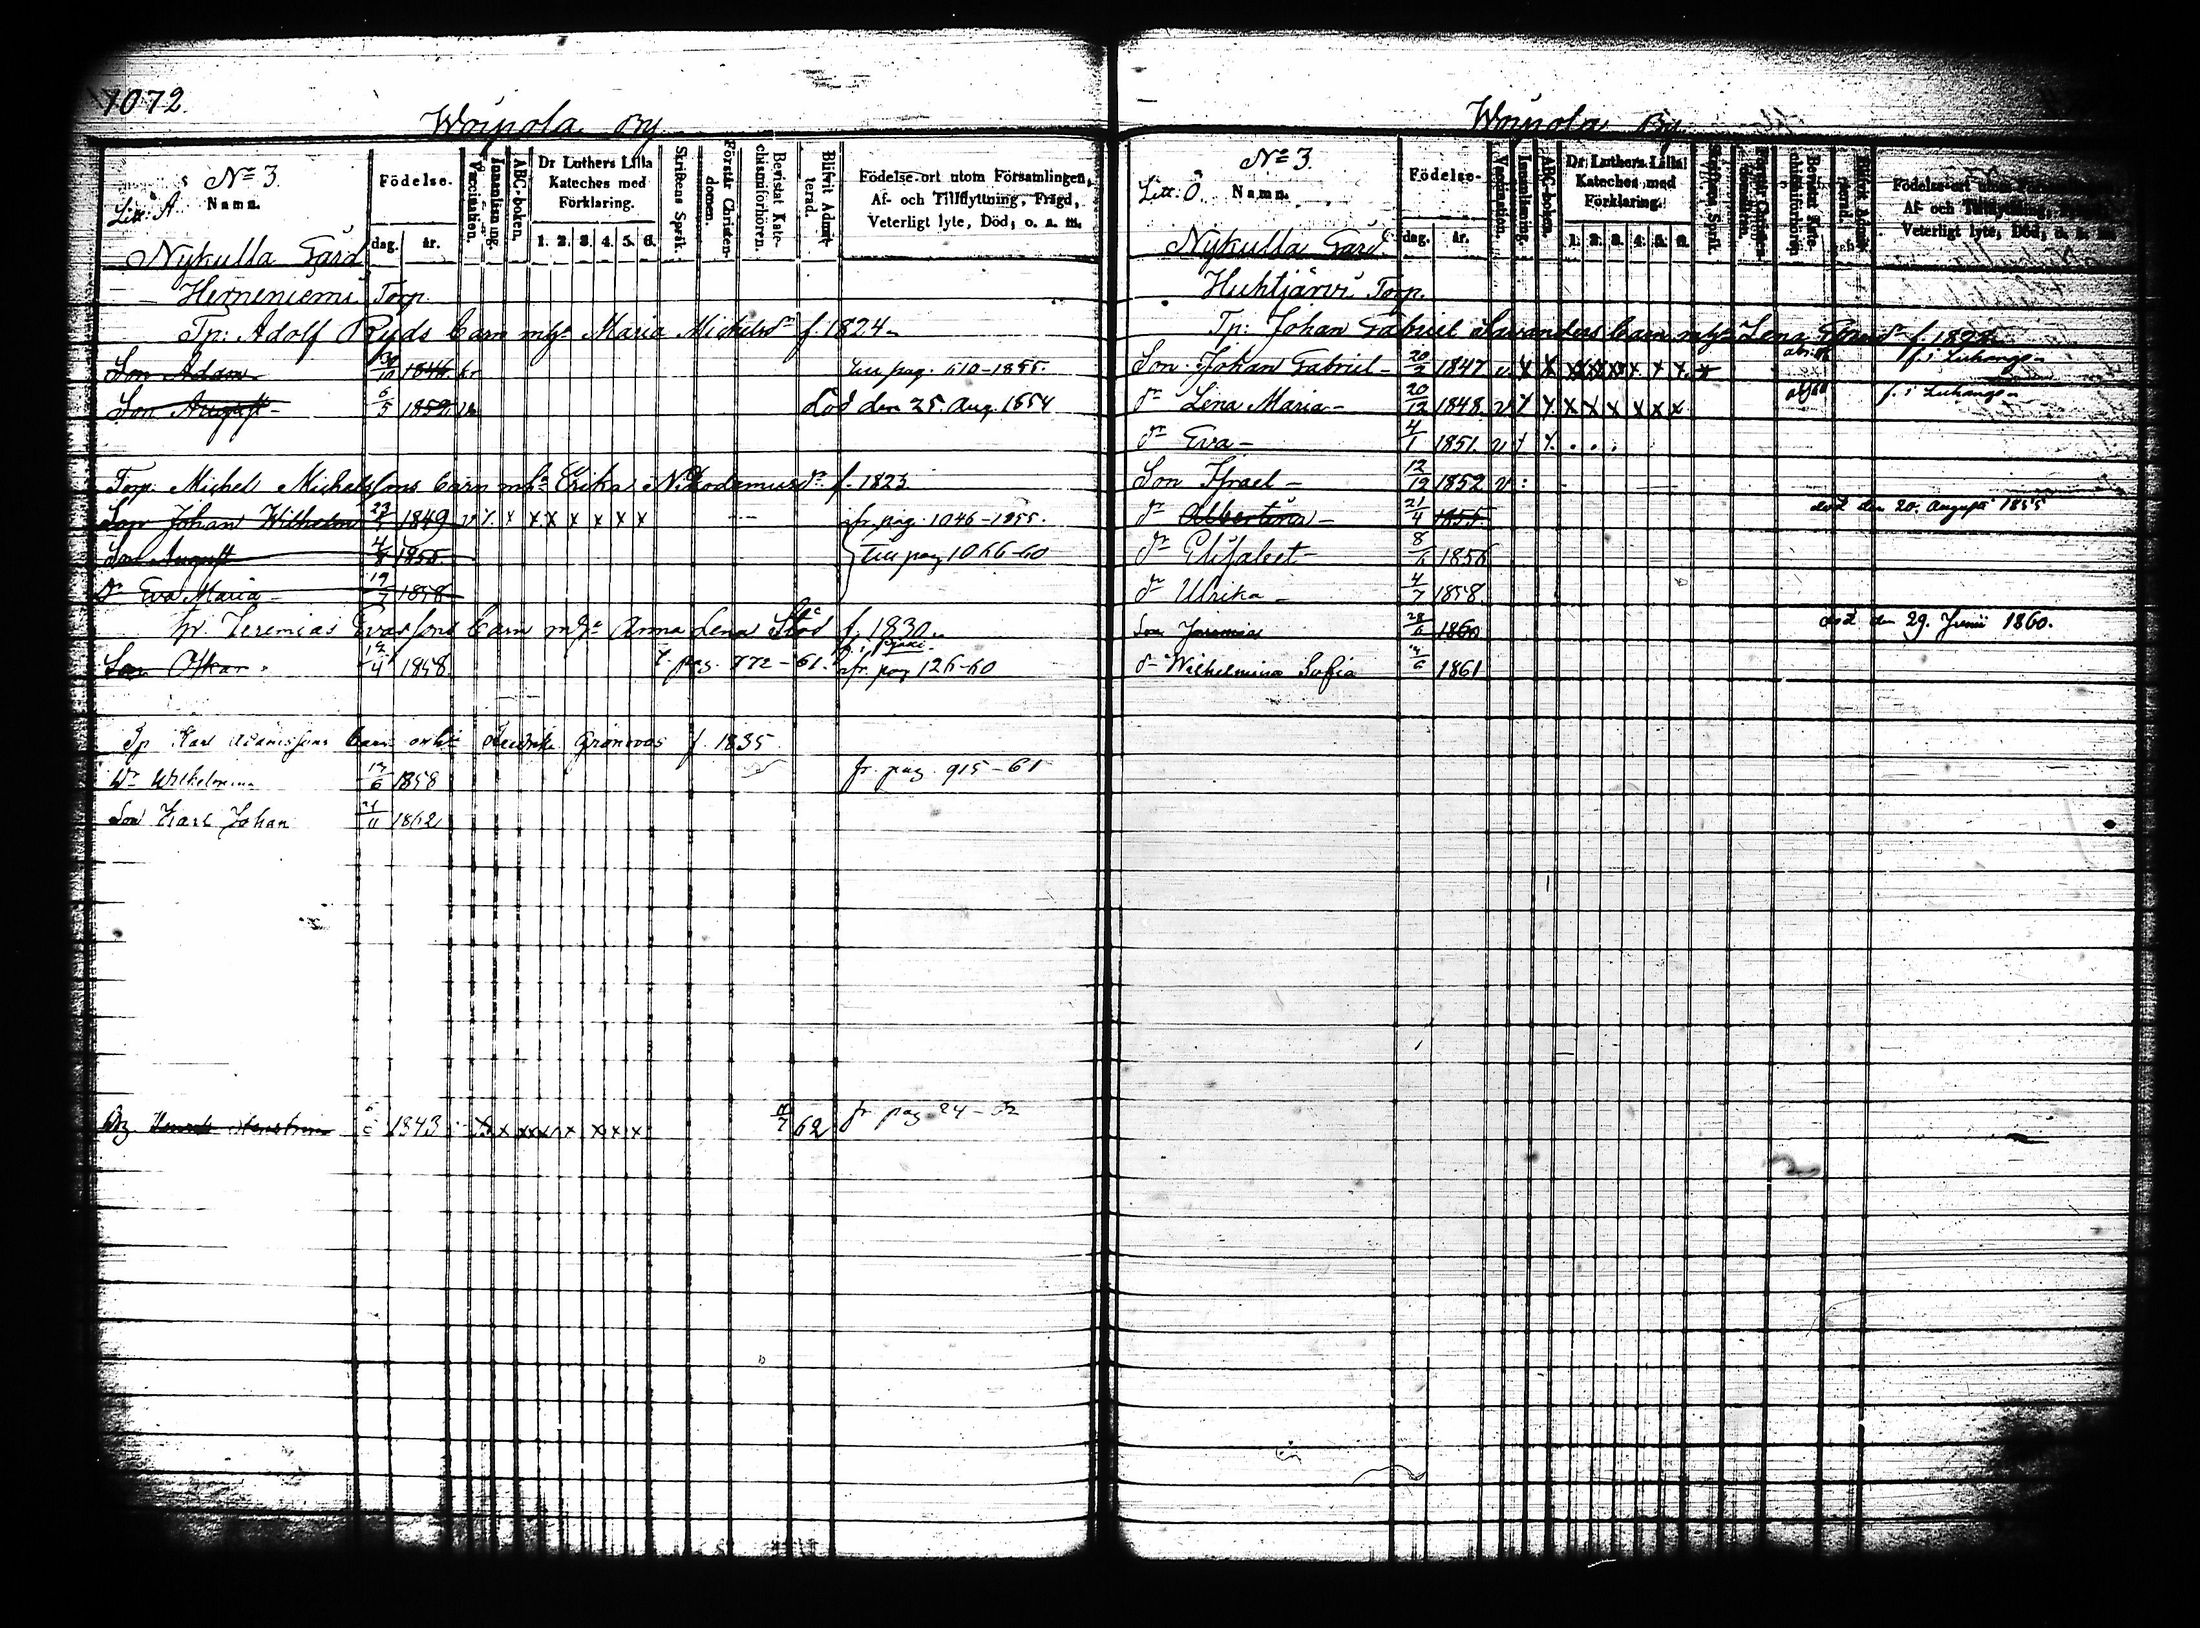 1072.
Woipola By
No 3.
Litt: Å Namn.
Födelse-
dag. år.
Vaccination.
Innanläsning.
ABC-boken.
Dr Luthers Lilla Kateches med Förklaring.
1. 2. 3. 4. 5. 6.
Skriftens Språk.
Förstår Christendomen.
Bevistat Katechismiförhören.
Blifvit Admitterad.
Födelse-ort utom Församlingen,
Af- och Tillflyttning, Frägd,
Veterligt lyte, Död, o. s. m.
Nykulla Gård
Herneniemi Torp.
Tp: Adolf Ryds Barn m h: Maria Michelsdr f. 1824
Son Adam 30/10 1846 till pag. 610-1855.
Son August 6/5 1852 död den 25 Aug. 1854
Torp. Michel Michelssons barn m h: Erika Nikodemusdr f. 1823
Son Johan Wilhelm 23 1849 v x x x x x x x x ifr. pag. 1046-1855.
Son August 4 1855. till pag 1066-60
dr Eva Maria 19/7 1858
Tp. Jeremias Evassons Barn m h: Anna Lena Stod f. 1830
Son Oskar 4 1858. t. pag. 772-61. ifr. pag 126-60
Tp Karl Adamssons barn m h: Fredrika Grönroos f. 1835
Dr Wilhelmina 6 1858 fr. pag. 915-61
Son Karl Johan 11 1862
1843 x x x x x x x x 7 62 fr pag 24-
Woipola By
No 3.
Litt: Ö. Namn.
Födelse-
dag. år.
Vaccination.
Innanläsning.
ABC-boken.
Dr Luthers Lilla Kateches med Förklaring.
1. 2. 3. 4. 5. 6.
Skriftens Språk.
Förstår Christendomen.
Bevistat Katechismiförhören.
Blifvit Admitterad.
Födelse-ort utom
Af- och Tillflyttning,
Veterligt lyte, Död, o. s. m.
Nykulla Gård.
Huhtjärvi Torp.
Tp: Johan Gabriel Savanders barn m h: Lena f. 182
Son Johan Gabriel 20/2 1847 v. x x x x x x x x x f. i Luhango
dr Lena Maria 20/12 1848. v x x x x x x x x f. i Luhango
dr Eva 4/1 1851. v
Son Israel 12/12 1852 v
dr Albertina 21/4 1855 död den 20. Augusti 1855
dr Elisabet 8/6 1856
dr Ulrika 4/7 1858.
Son Jeremia 28/6 1860 död den 29. Junii 1860.
dr Wilhelmina Sofia 6 1861